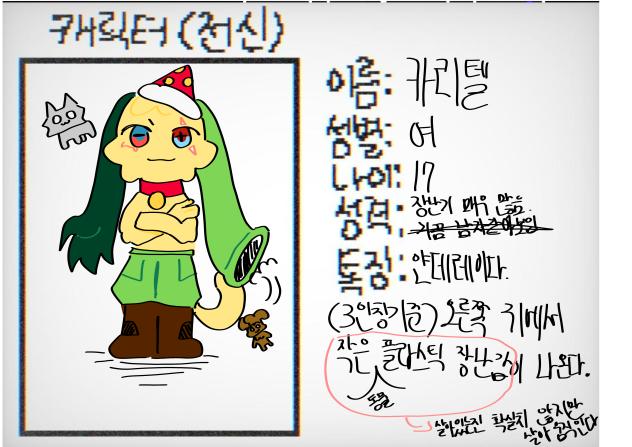 캐릭터 (전신)
이름: 카리텔
성별: 여
나이: 17
성격: 장난기 매우 많음.
가끔 남자같아보임
특징: 얀데레이다.
(3인칭기준) 오른쪽 귀에서
작은 동물 플라스틱 장난감이 나온다.
살아있는진 확실치 않지만
살아 움직인다